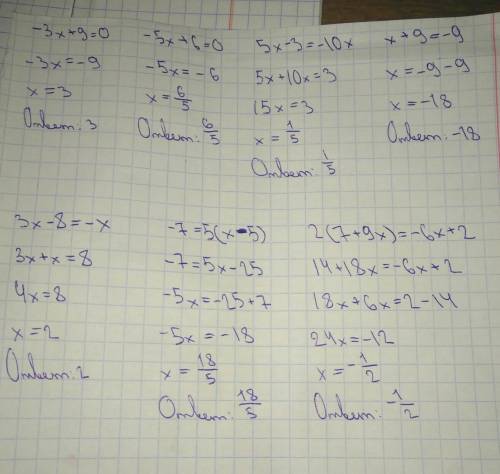 -3x+9=0
-3x=-9
x=3
Ответ: 3
-5x+6=0
-5x=-6
x=6/5
Ответ: 6/5
5x-3=-10x
5x+10x=3
15x=3
x=1/5
Ответ: 1/5
x+9=-9
x=-9-9
x=-18
Ответ: -18
3x-8=-x
3x+x=8
4x=8
x=2
Ответ: 2
-7=5(x-5)
-7=5x-25
-5x=-25+7
-5x=-18
x=18/5
Ответ: 18/5
2(7+9x)=-6x+2
14+18x=-6x+2
18x+6x=2-14
24x=-12
x=-1/2
Ответ: -1/2